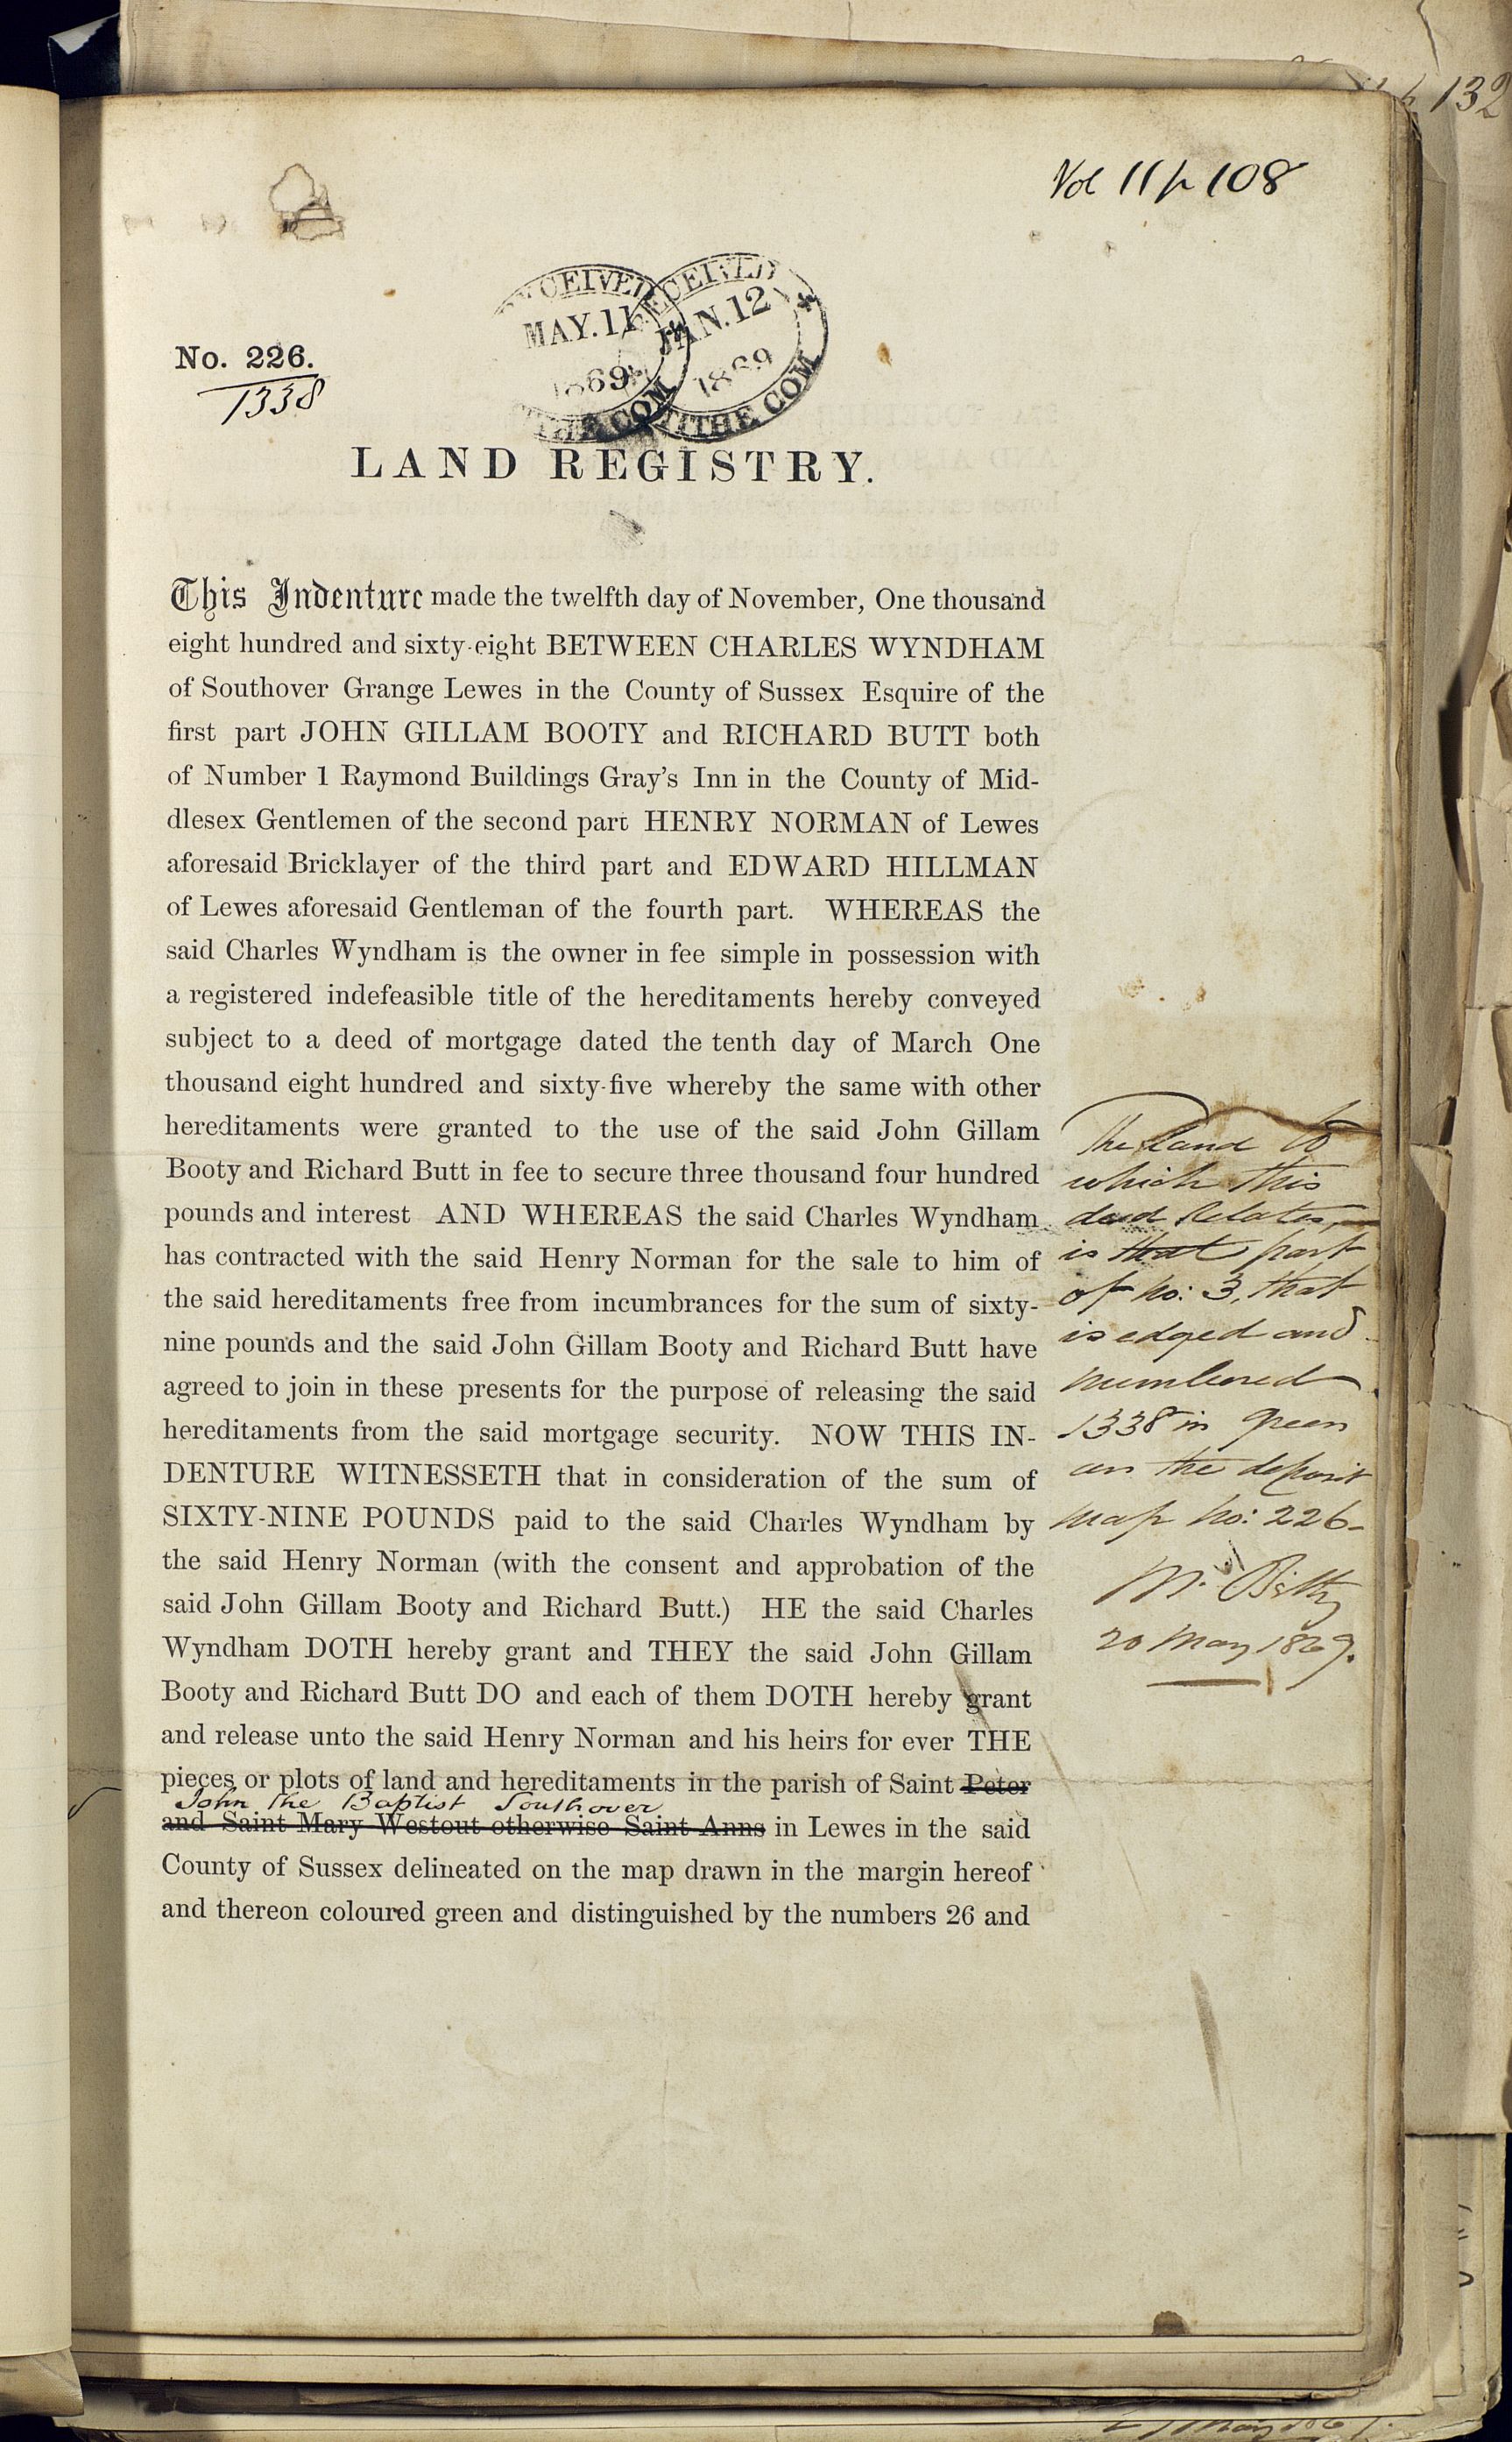 132
Vol 11 p 108
RECEIVED
MAY.11
1869
TITHE COM
RECEIVED
JAN.12
1869
TITHE COM
No. 226.
1338
LAND REGISTRY.
This Indenture made the twelfth day of November, One thousand
eight hundred and sixty-eight BETWEEN CHARLES WYNDHAM
of Southover Grange Lewes in the County of Sussex Esquire of the
first part JOHN GILLAM BOOTY and RICHARD BUTT both
of Number 1 Raymond Buildings Gray's Inn in the County of Mid-
dlesex Gentlemen of the second part HENRY NORMAN of Lewes
aforesaid Bricklayer of the third part and EDWARD HILLMAN
of Lewes aforesaid Gentleman of the fourth part. WHEREAS the
said Charles Wyndham is the owner in fee simple in possession with
a registered indefeasible title of the hereditaments hereby conveyed
subject to a deed of mortgage dated the tenth day of March One
thousand eight hundred and sixty-five whereby the same with other
hereditaments were granted to the use of the said John Gillam
Booty and Richard Butt in fee to secure three thousand four hundred
pounds and interest AND WHEREAS the said Charles Wyndham
has contracted with the said Henry Norman for the sale to him of
the said hereditaments free from incumbrances for the sum of sixty-
nine pounds and the said John Gillam Booty and Richard Butt have
agreed to join in these presents for the purpose of releasing the said
hereditaments from the said mortgage security. NOW THIS IN-
DENTURE WITNESSETH that in consideration of the sum of
SIXTY-NINE POUNDS paid to the said Charles Wyndham by
the said Henry Norman (with the consent and approbation of the
said John Gillam Booty and Richard Butt.) HE the said Charles
Wyndham DOTH hereby grant and THEY the said John Gillam
Booty and Richard Butt DO and each of them DOTH hereby grant
and release unto the said Henry Norman and his heirs for ever THE
pieces or plots of land and hereditaments in the parish of Saint Peter
John the Baptist Southover
and Saint Mary Westout otherwise Saint Anns in Lewes in the said
County of Sussex delineated on the map drawn in the margin hereof
and thereon coloured green and distinguished by the numbers 26 and
The Land to
which this
deed relates,
is that part
of No: 3, that
is edged and
numbered
1338 in green
on the deposit
map No: 226-
20 May 1869.